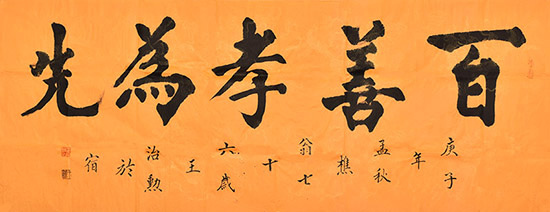 百善孝為先
庚子年孟秋樵翁七十六歲王治勳於宿